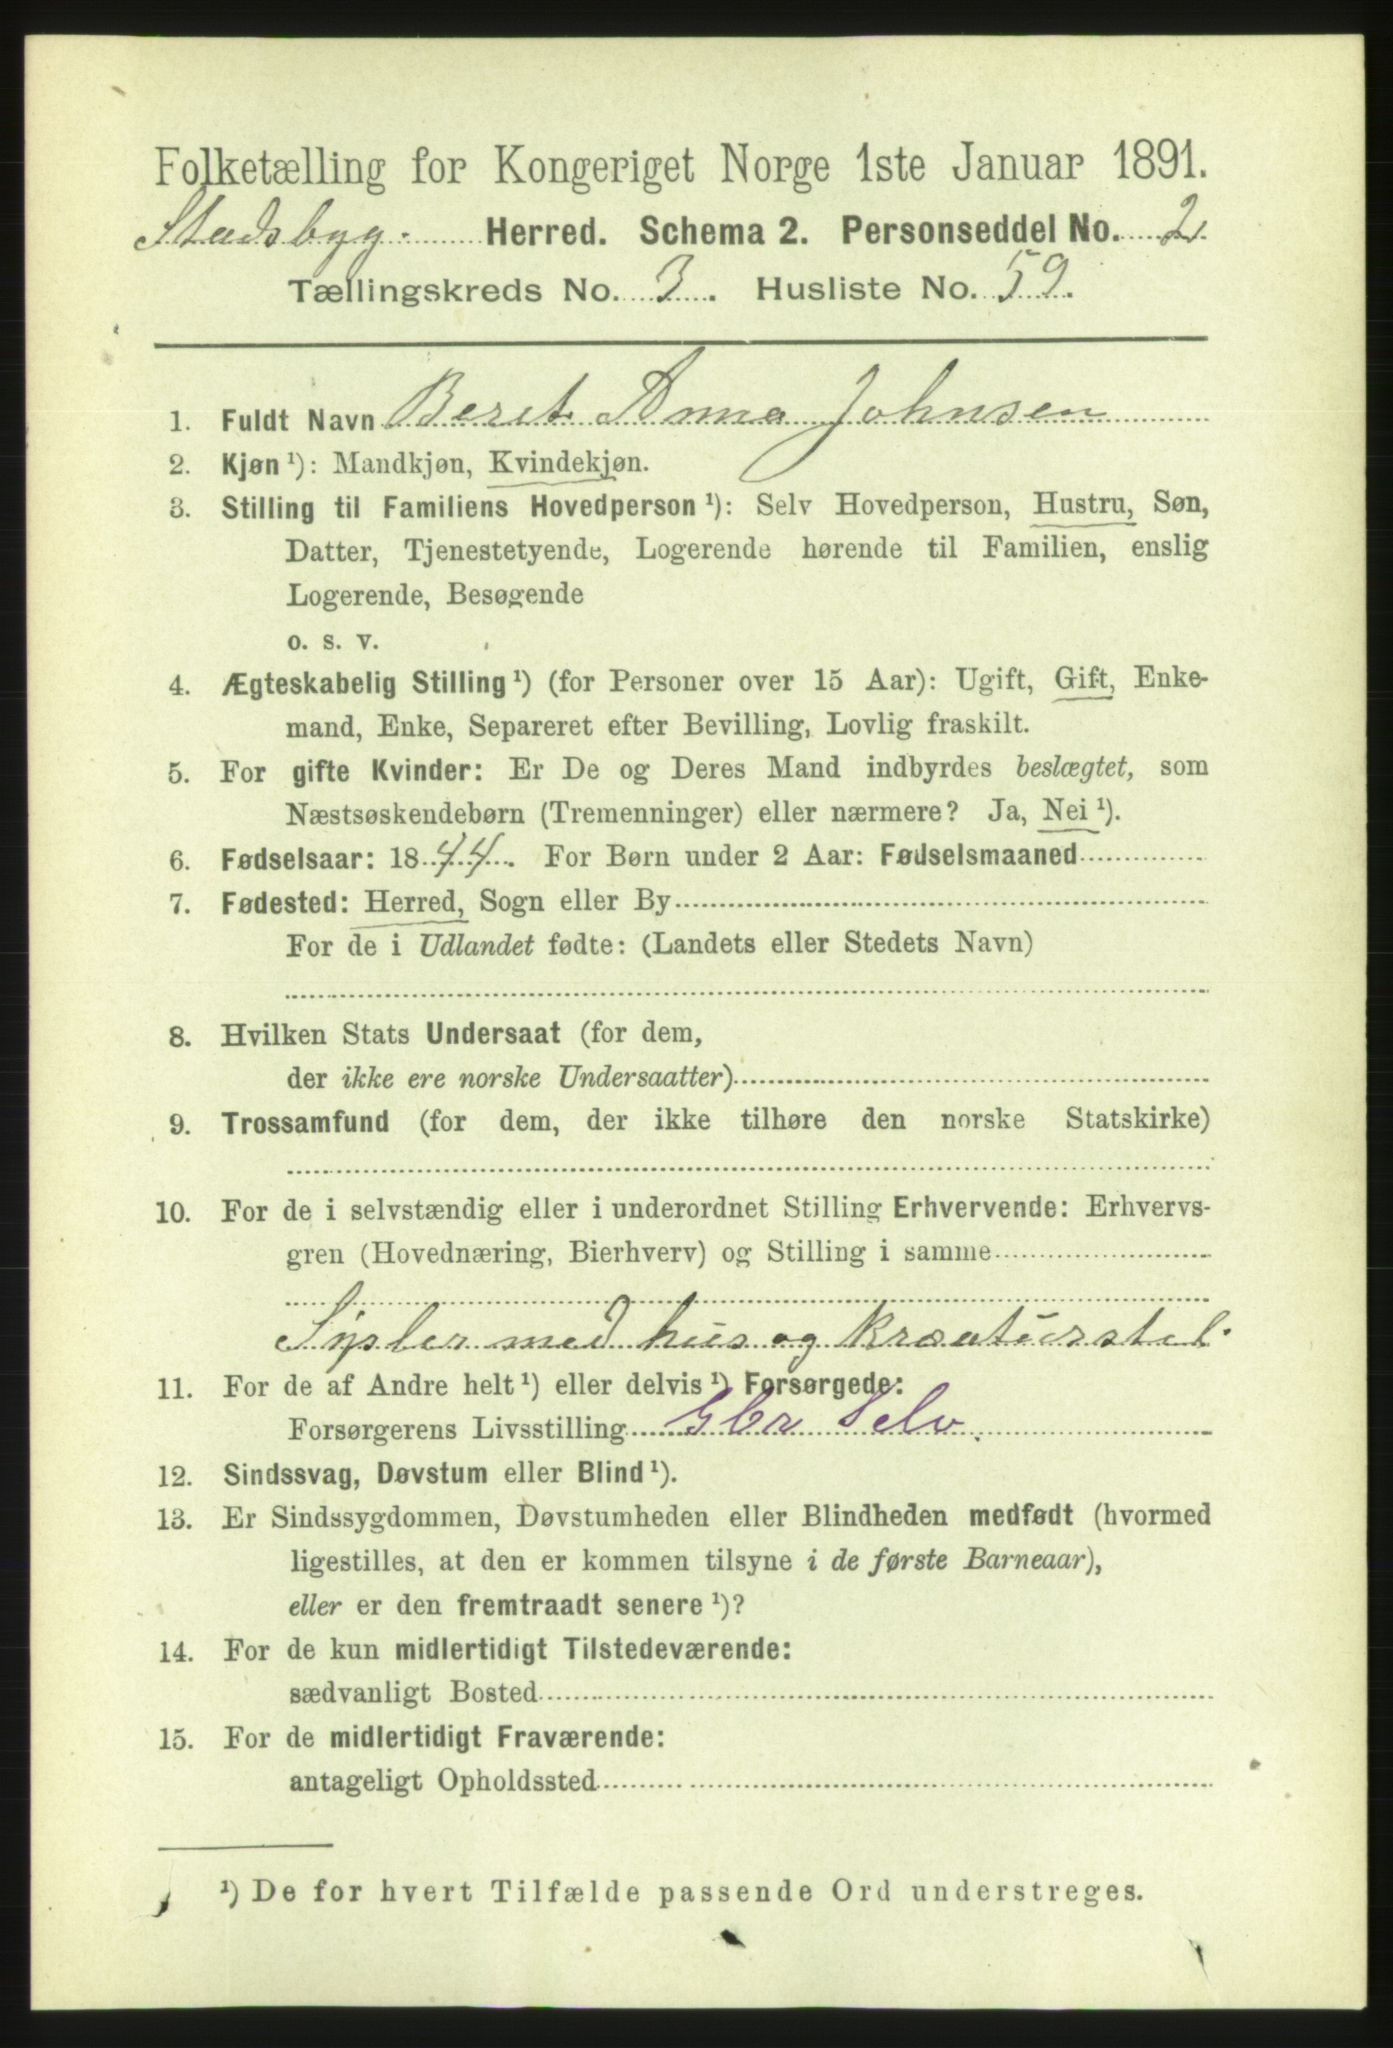 Folketælling for Kongeriget Norge 1ste Januar 1891.
Stadsbyg. Herred. Schema 2. Personseddel No. 2.
Tællingskreds No. 3. Husliste No. 59.
1. Fuldt Navn Beret Anna Johnsen
2. Kjøn ¹): Mandkjøn, Kvindekjøn.
3. Stilling til Familiens Hovedperson ¹): Selv Hovedperson, Hustru, Søn,
Datter, Tjenestetyende, Logerende hørende til Familien, enslig
Logerende, Besøgende
o. s. v.
4. Ægteskabelig Stilling ¹) (for Personer over 15 Aar): Ugift, Gift, Enke-
mand, Enke, Separeret efter Bevilling, Lovlig fraskilt.
5. For gifte Kvinder: Er De og Deres Mand indbyrdes beslægtet, som
Næstsøskendebørn (Tremenninger) eller nærmere? Ja, Nei ¹).
6. Fødselsaar: 1844. For Børn under 2 Aar: Fødselsmaaned
7. Fødested: Herred, Sogn eller By
For de i Udlandet fødte: (Landets eller Stedets Navn)
8. Hvilken Stats Undersaat (for dem,
der ikke ere norske Undersaatter)
9. Trossamfund (for dem, der ikke tilhøre den norske Statskirke)
10. For de i selvstændig eller i underordnet Stilling Erhvervende: Erhvervs-
gren (Hovednæring, Bierhverv) og Stilling i samme
Sysler med hus og kræaturstel.
11. For de af Andre helt ¹) eller delvis ¹) Forsørgede:
Forsørgerens Livsstilling Gbr Selv.
12. Sindssvag, Døvstum eller Blind ¹).
13. Er Sindssygdommen, Døvstumheden eller Blindheden medfødt (hvormed
ligestilles, at den er kommen tilsyne i de første Barneaar),
eller er den fremtraadt senere ¹)?
14. For de kun midlertidigt Tilstedeværende:
sædvanligt Bosted
15. For de midlertidigt Fraværende:
antageligt Opholdssted
¹) De for hvert Tilfælde passende Ord understreges.